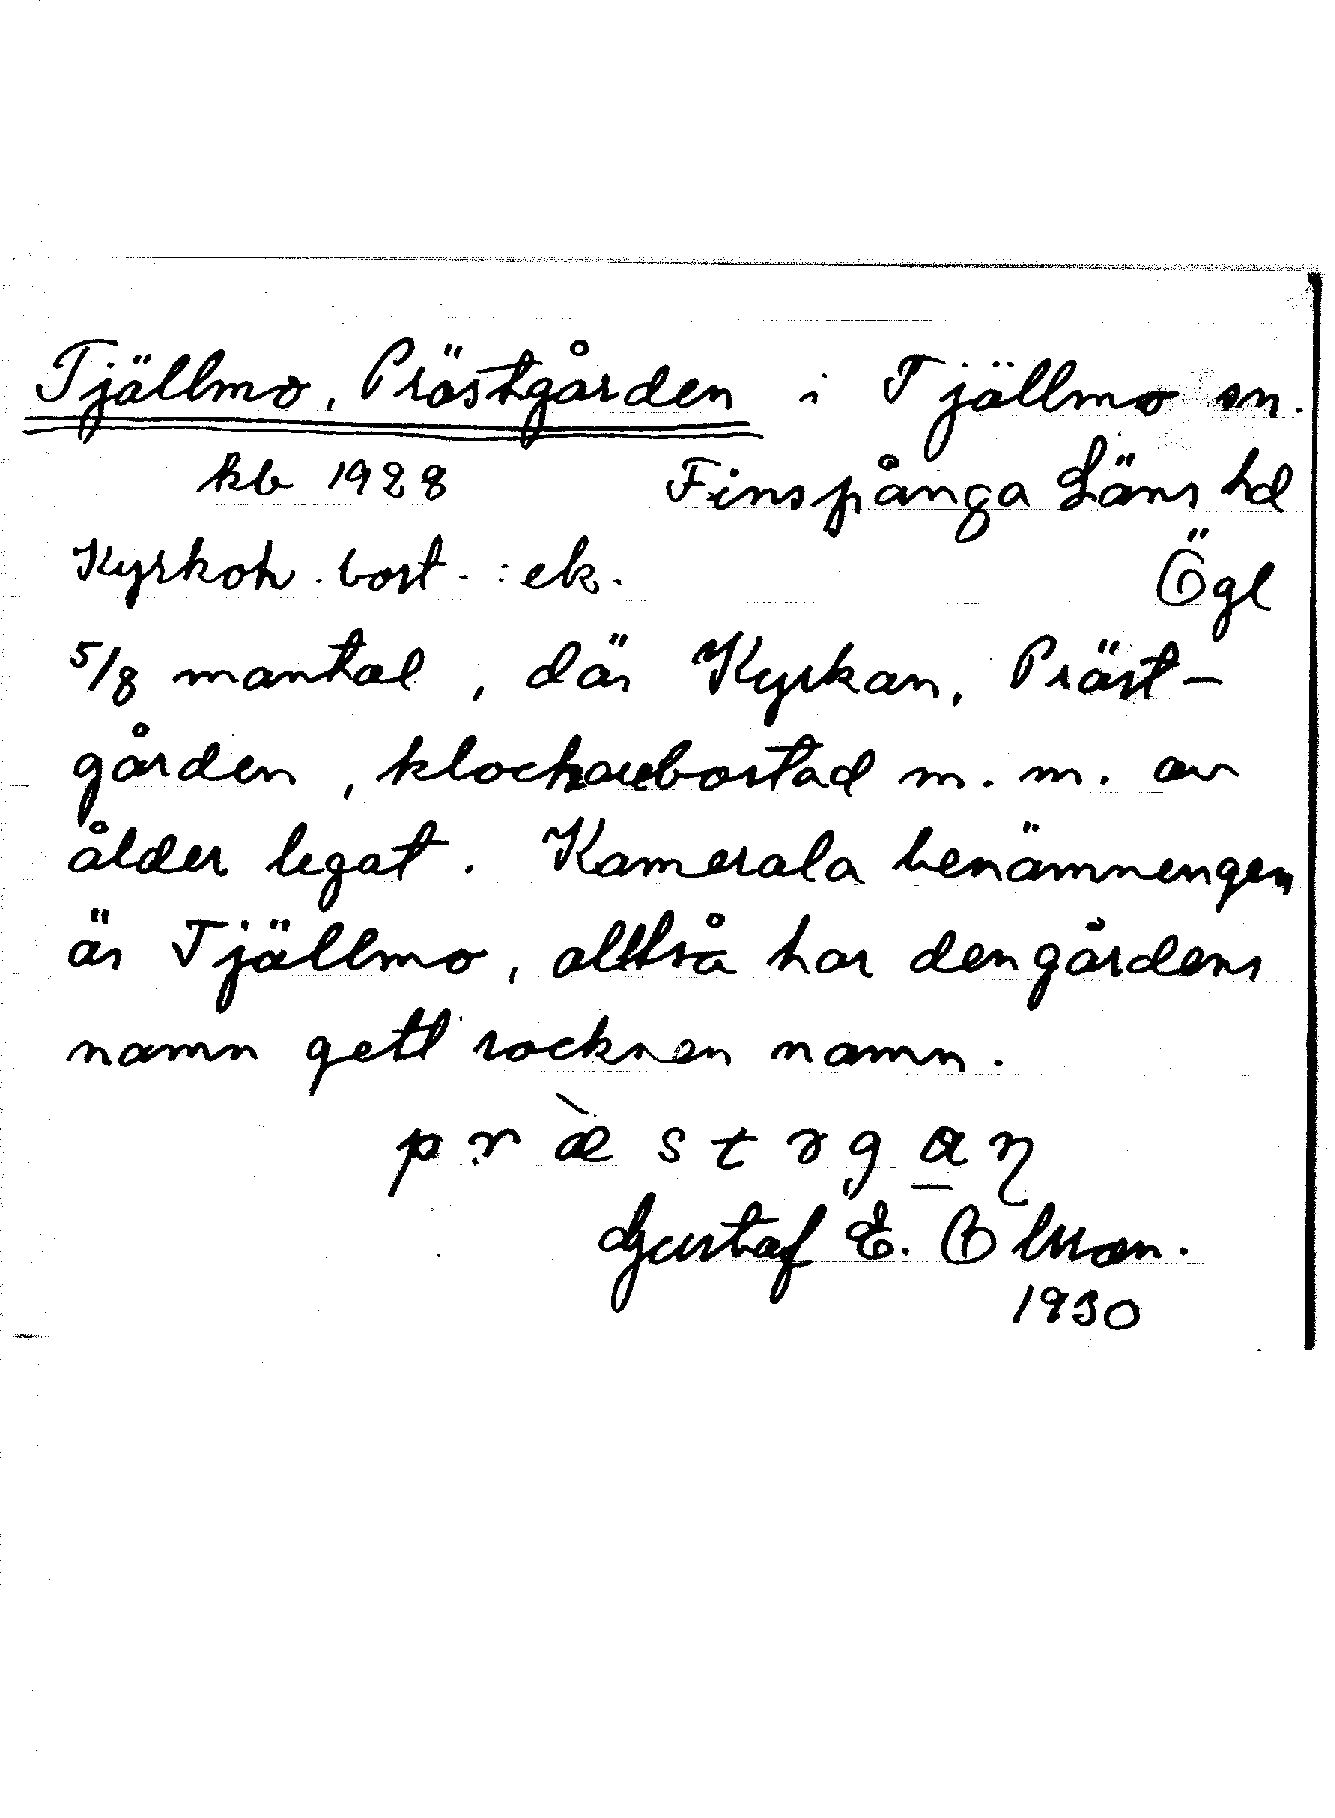 Tjällmo, Prästgården i Tjällmo sn.
kb 1928 Finspånga Läns hd
Kyrkoh. bost. : ek. Ögl
5/8 mantal, där Kyrkan, Präst-
gården, klockarebostad m. m. av
ålder legat. Kamerala benämnengen
är Tjällmo, alltså har den gårdens
namn gett socknen namn.
Gustaf E. Olsson.
1930